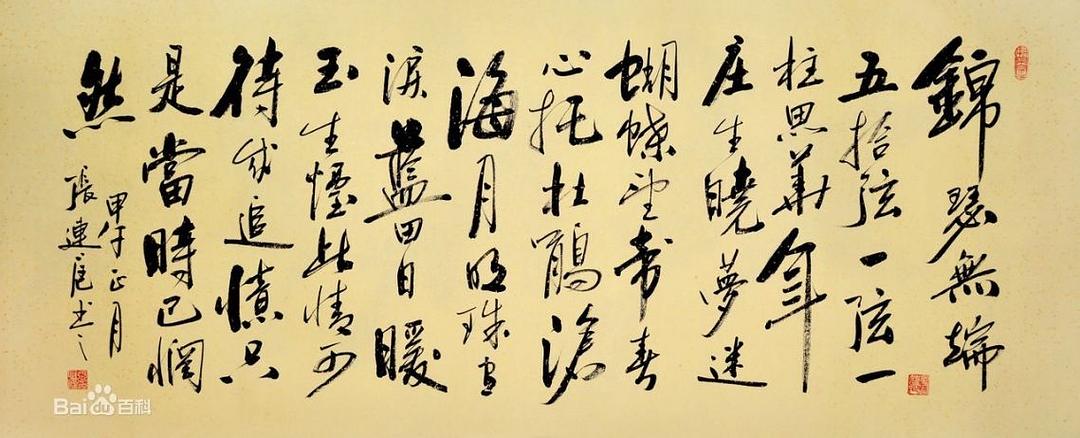 錦瑟無端
五拾弦一弦一
柱思華年
庄生曉夢迷
蝴蝶望帝春
心托杜鵑滄
海月明珠有
淚藍田日暖
玉生煙此情可
待成追憶只
是當時已惘
然
甲午正月
張連書之
Bai百科